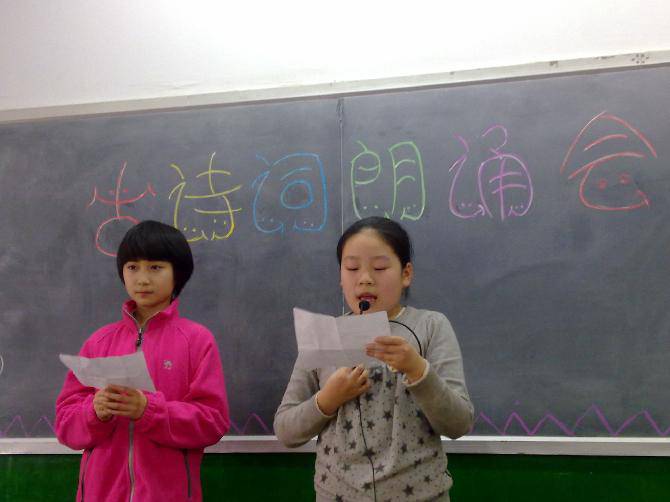 古诗词朗诵会